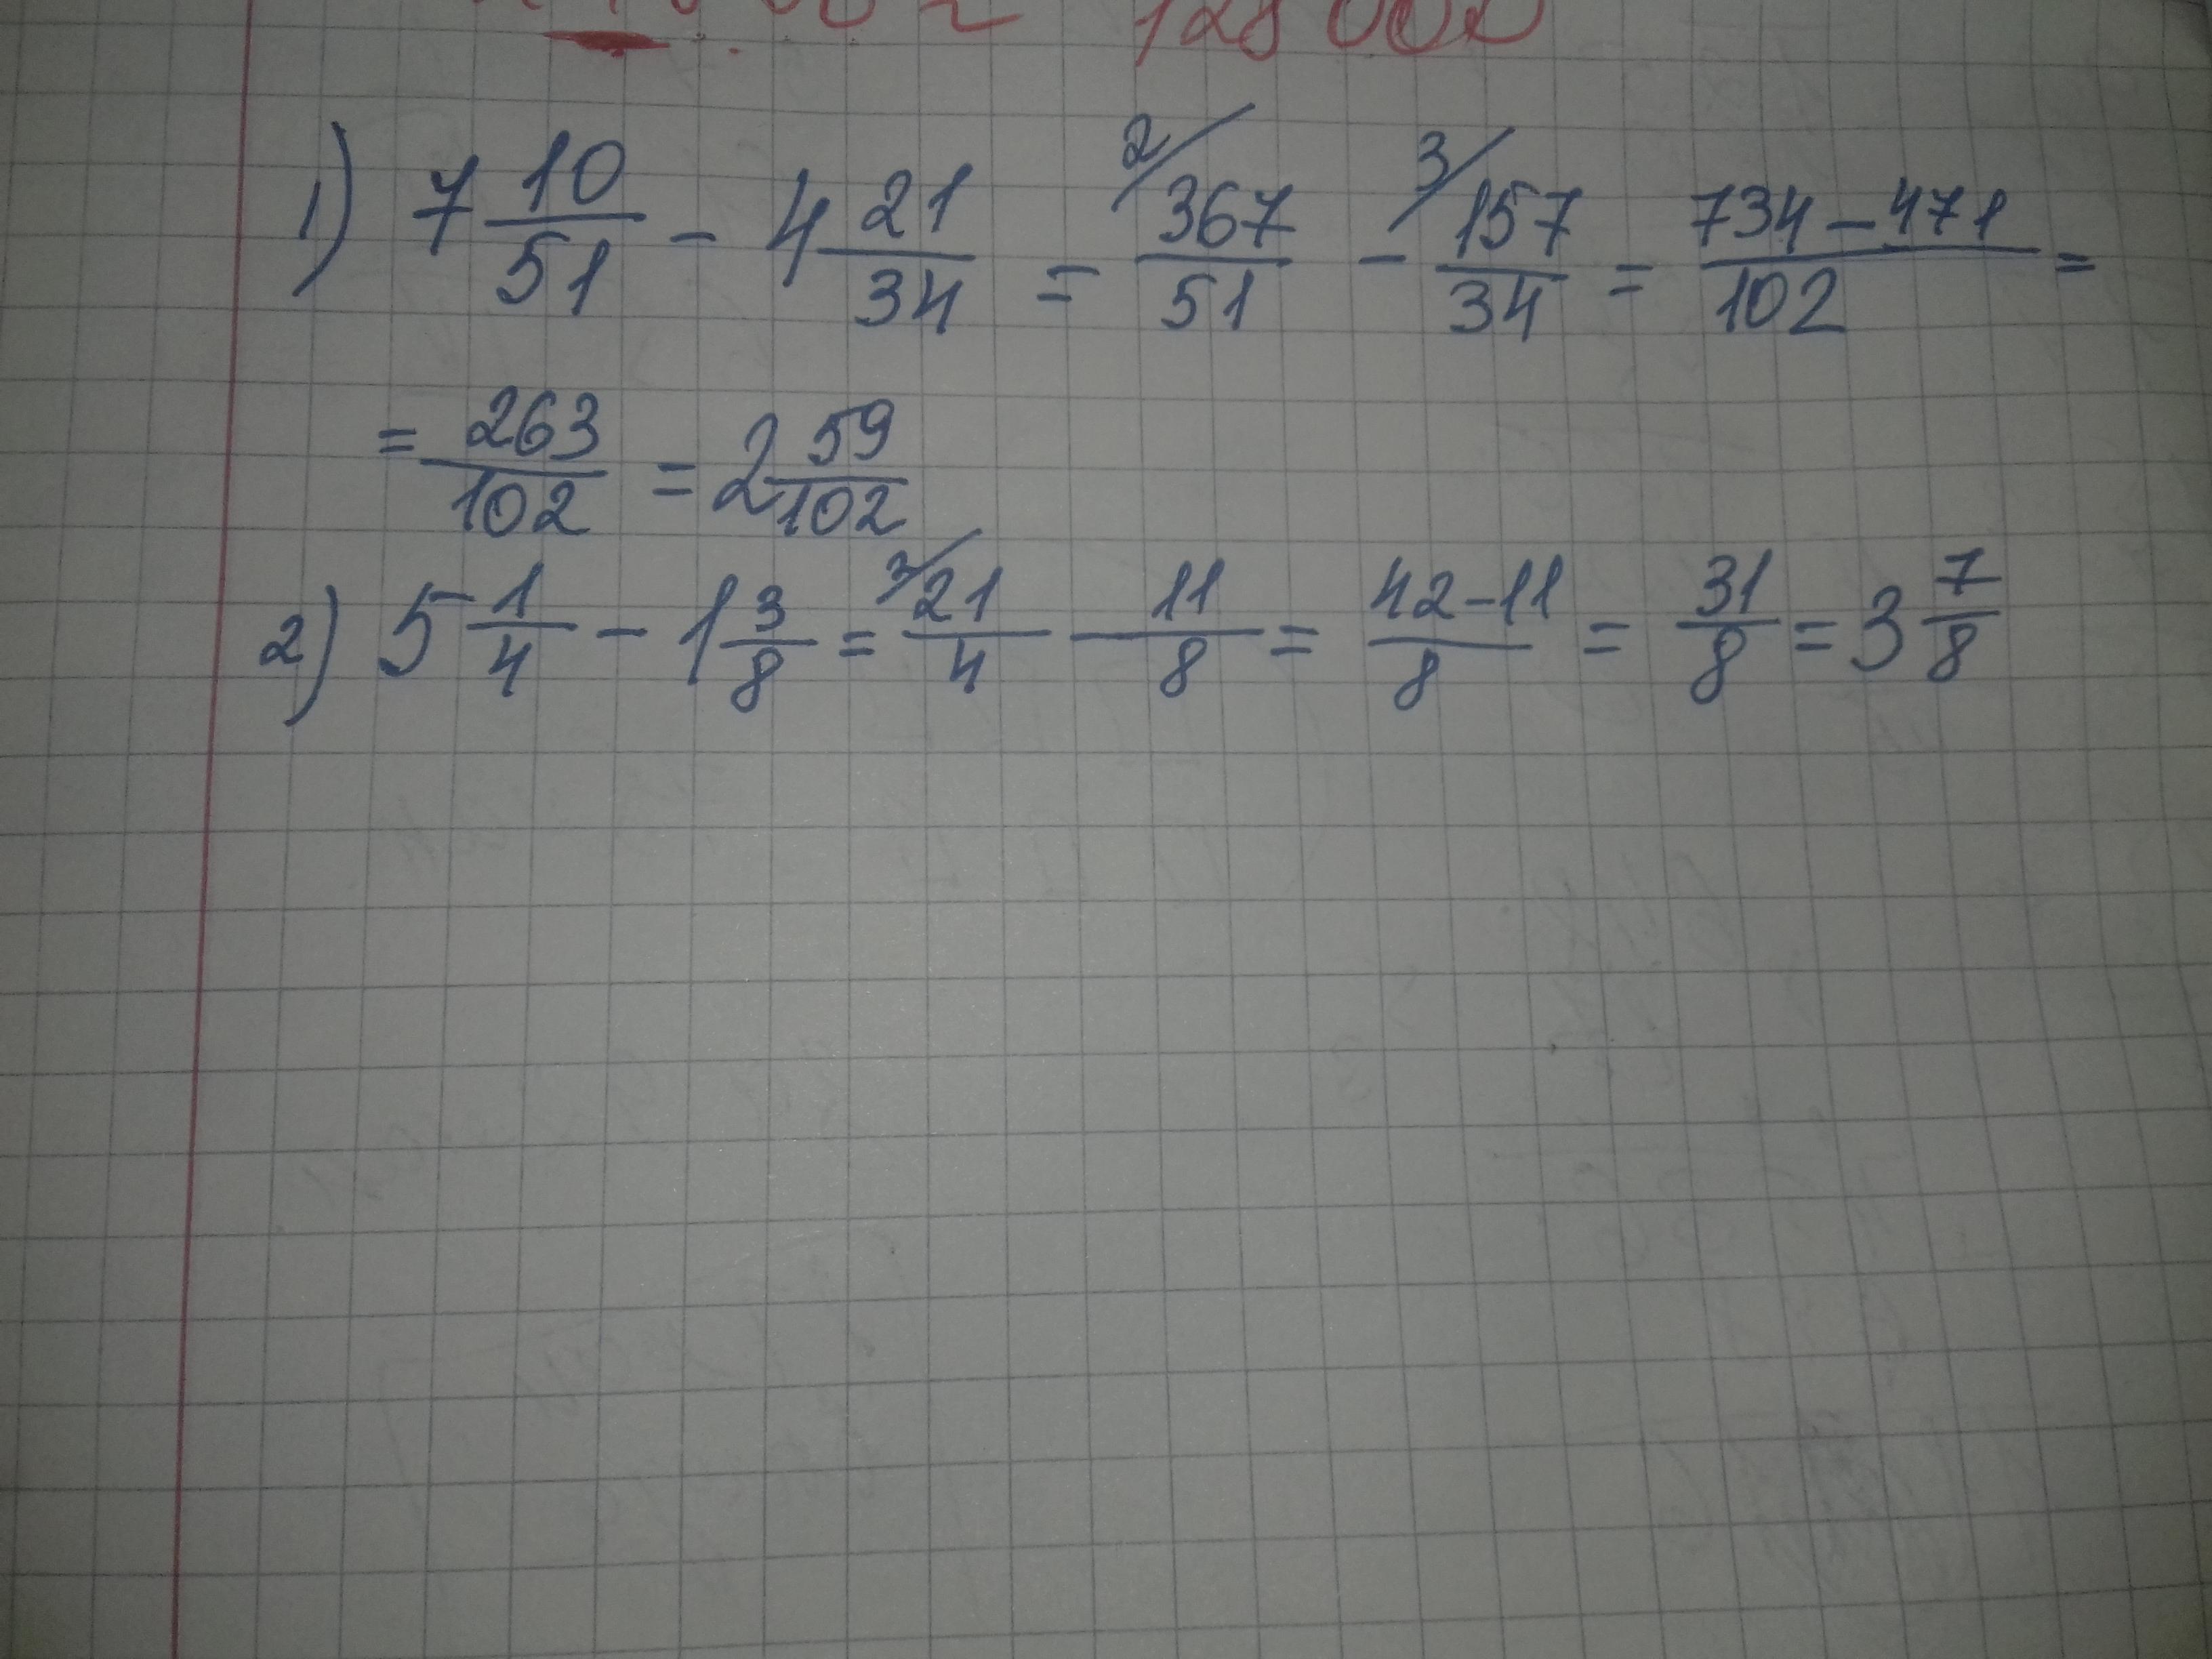 128 000
1) 7 10/51 - 4 21/34 = 2/ 367/51 - 3/ 157/34 = 734-471/102 =
= 263/102 = 2 59/102
2) 5 1/4 - 1 3/8 = 21/4 - 11/8 = 42-11/8 = 31/8 = 3 7/8